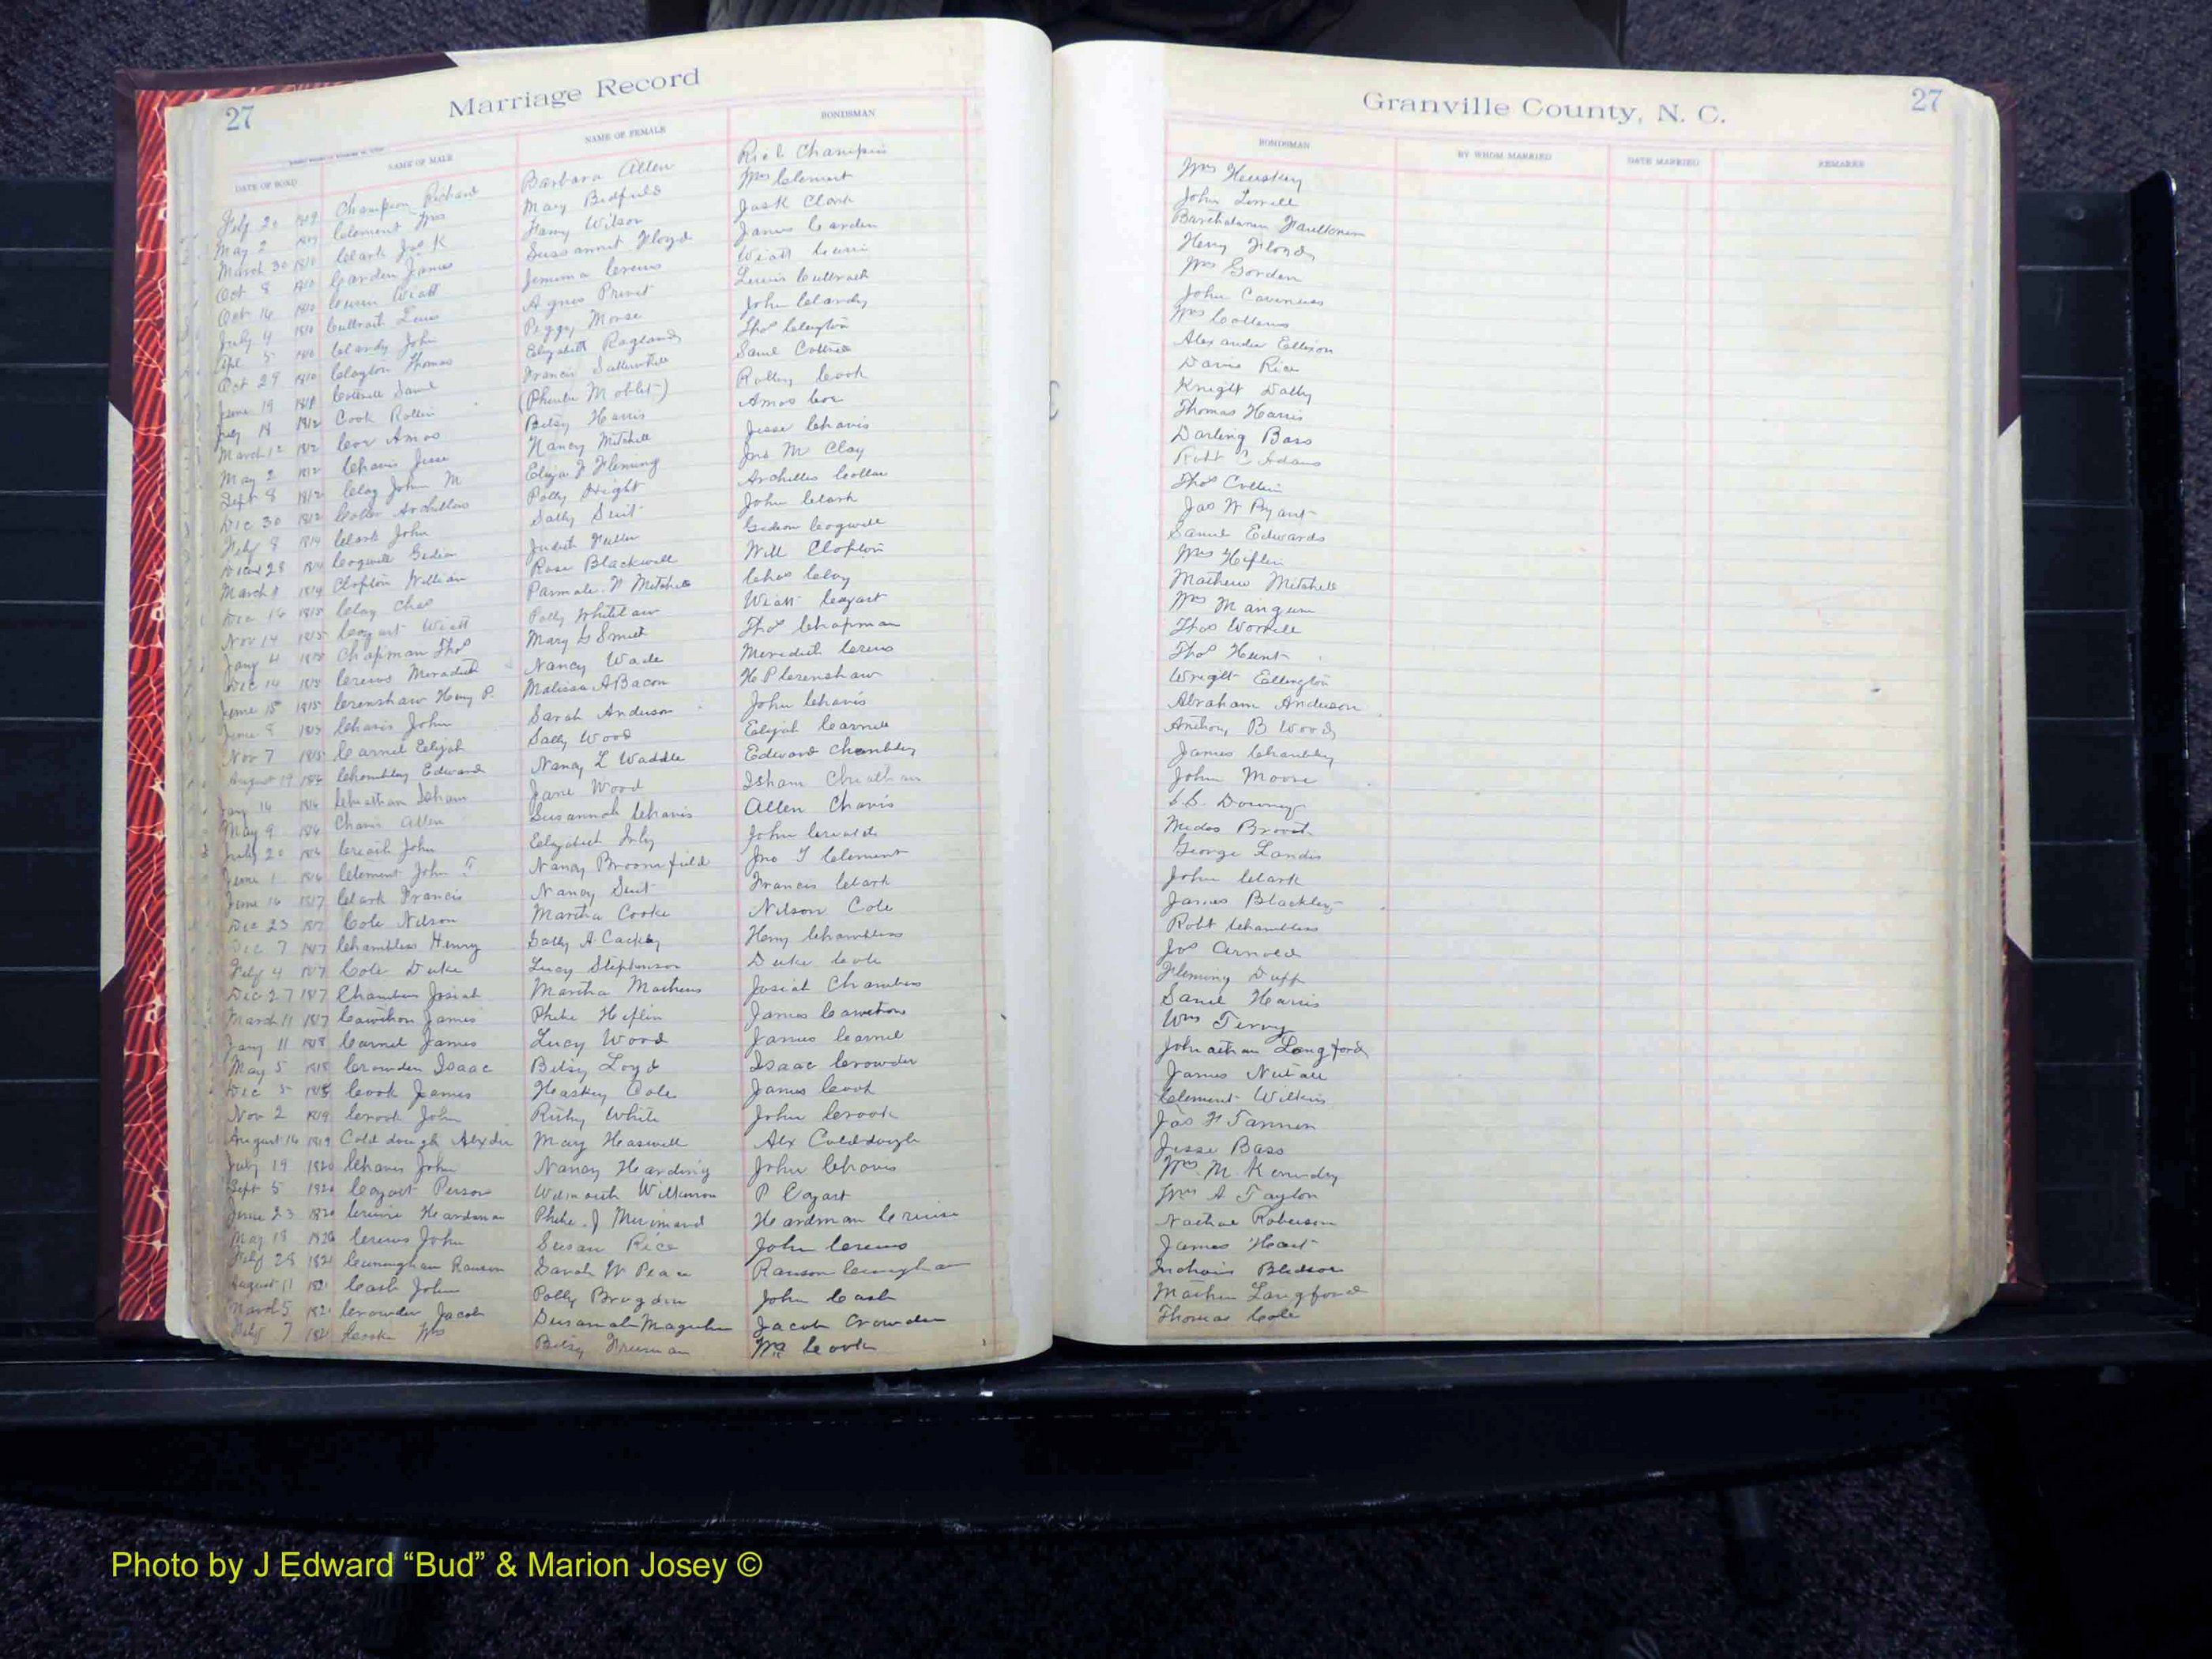 27 Marriage Record
DATE OF BOND NAME OF MALE NAME OF FEMALE BONDSMAN
Feby 20 1809 Champion Richard Barbara Allen Rich Champion
May 2 1809 Clement Wm Mary Bedfield Wm Clement
March 30 1810 Clark Jas K Fanny Wilson Jas K Clark
Oct 8 1810 Carden James Susannah Floyd James Carden
Oct 16 1810 Wiatt Jemima Crews Wiatt
July 4 1810 Lewis Agnes Privit Lewis
Apl 5 1810 Clardy John Peggy Moose John Clardy
Oct 29 1810 Clayton Thomas Elizabeth Ragland Thos Clayton
June 19 Cottrell Saml Francis Saml Cottrell
July 18 1812 Cook Rollin (Phoebe Moblet) Rolley Cook
March 12 1812 Amos Betsy Harris Amos
May 2 1812 Chavis Jesse Nancy Mitchell Jesse Chavis
Sept 8 1812 Clay John M Eliza F Fleming Jno M Clay
Dec 30 1812 Archilles Polly Hight Archilles
Feby 8 1814 Clark John Sally Suit John Clark
Decm 28 1814 Cogwell Gideon Judith Fuller Gideon Cogwell
March 8 1814 Clopton William Rose Blackwell Will Clopton
Dec 16 1815 Clay Chas Mitchell Chas Clay
Nov 14 1815 Cozart Wiatt Polly Whitlaw Wiatt Cozart
Jany 4 1815 Chapman Thos Mary G Smith Thos Chapman
Dec 14 1815 Crews Meredith Nancy Wade Meredith Crews
June 15 1815 Crenshaw Henry P. Malissa A Bacon H P Crenshaw
June 8 1815 Chavis John Sarah Anderson John Chavis
Nov 7 1815 Carnel Elijah Sally Wood Elijah Carnell
August 19 1816 Chambley Edward Nancy L Waddle Edward Chambley
Jany 14 1816 Cheatham Isham Jane Wood Isham Cheatham
May 9 1816 Chavis Allen Susannah Chavis Allen Chavis
July 20 1816 John Elizabeth John
June 1 1816 Clement John T Nancy Broomfield Jno T Clement
June 16 1817 Clark Francis Nancy Suit Francis Clark
Dec 23 1817 Cole Nilson Martha Cooke Nilson Cole
Dec 7 1817 Chambless Henry Sally A. Henry Chambless
Feby 4 1817 Cole Duke Lucy Stephenson Duke Cole
Dec 27 1817 Chambers Josiah Martha Mathews Josiah Chambers
March 11 1817 Cawthon James Phebe Heflin James Cawthon
Jany 11 1818 Carnel James Lucy Wood James Carnel
May 5 1818 Crowder Isaac Betsy Loyd Isaac Crowder
Dec 5 1818 Cook James Haskey Cole James Cook
Nov 2 1819 Crook John Ruthy White John Crook
August 16 1819 Colddough Alexdr May Haswell Alex Colddough
July 19 1820 Chavis John Nancy Harding John Chavis
Sept 5 1820 Cozart Person Wilmouth Wilkinson P Cozart
June 23 1820 Heardman Phebe J Merimond Heardman
May 18 1820 Crews John Susan Rice John Crews
Feby 28 1821 Cunningham Ranson Sarah W Ranson
August 11 1821 Cash John Polly Brogdin John Cash
March 5 1821 Crowder Jacob Susanah Jacob Crowder
Feby 7 1821 Cooke Wm Betsy Freeman Wm Cook
Granville County, N. C. 27
BONDSMAN BY WHOM MARRIED DATE MARRIED REMARKS
Wm Huskey
John
Bartholomew Faulkner
Henry Floyd
Wm Gordon
John Caviness
Wm Collens
Alexander Ellixon
Davis Rice
Knight Dalby
Thomas Harris
Darling Bass
Robt C Adams
Thos Collin
Jas W Bryant
Samuel Edwards
Wm Heflin
Mathew Mitchell
Wm Mangum
Thos Worrell
Thos Hunt
Wright Ellington
Abraham Anderson
Anthony B Wood
James Chambley
John Moore
S.S. Downey
George Landis
John Clark
James Blackley
Robt Chambless
Jos Arnold
Fleming Duff
Saml Harris
Wm Terry
Johnathan Langford
James Nutall
Clement Wilkins
Jas F Tanner
Jesse Bass
Wm. M. Kennedy
Wm A Taylor
Nathal Roberson
James Heart
Bledsoe
Mathew Langford
Thomas Cole
Photo by J Edward “Bud” & Marion Josey ©